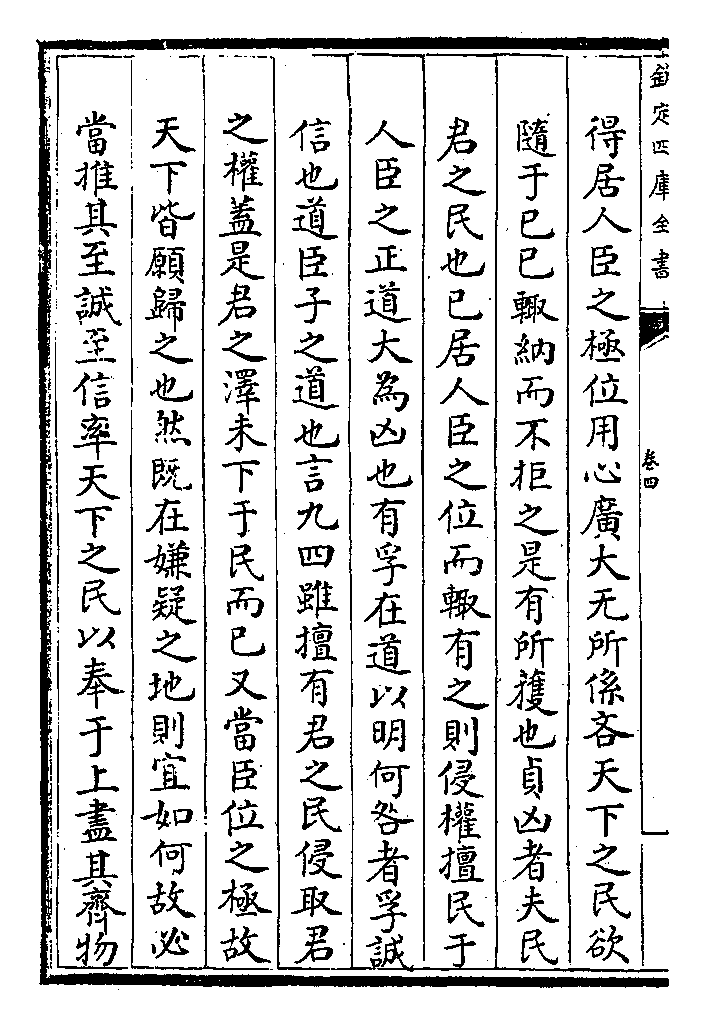 欽定四庫全書
卷四
得居人臣之極位用心廣大无所係吝天下之民欲
隨于已已輙納而不拒之是有所獲也貞凶者夫民
君之民也已居人臣之位而輙有之則侵權擅民于
人臣之正道大為凶也有孚在道以明何咎者孚誠
信也道臣子之道也言九四雖擅有君之民侵取君
之權蓋是君之澤未下于民而已又當臣位之極故
天下皆願歸之也然既在嫌疑之地則宜如何故必
當推其至誠至信率天下之民以奉于上盡其齊物